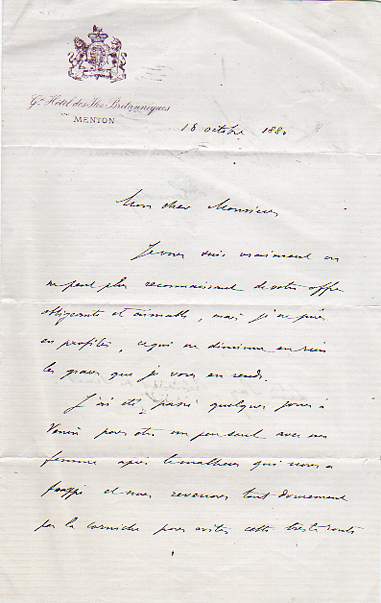 Gd. Hôtel des Iles Britanniques
MENTON
18 octobre 188
Mon cher Monsieur
Je vous suis vraiment on
ne peut plus reconnaissant de votre offre
obligeante et aimable, mais je ne puis
en profiter, ce qui ne diminue en rien
les graces que je vous en rends.
J'ai été passé quelques jours à
Venise pour être un peu seul avec ma
femme après le malheur qui nous a
frappé et nous revenons tout doucement
par la corniche pour éviter cette triste route